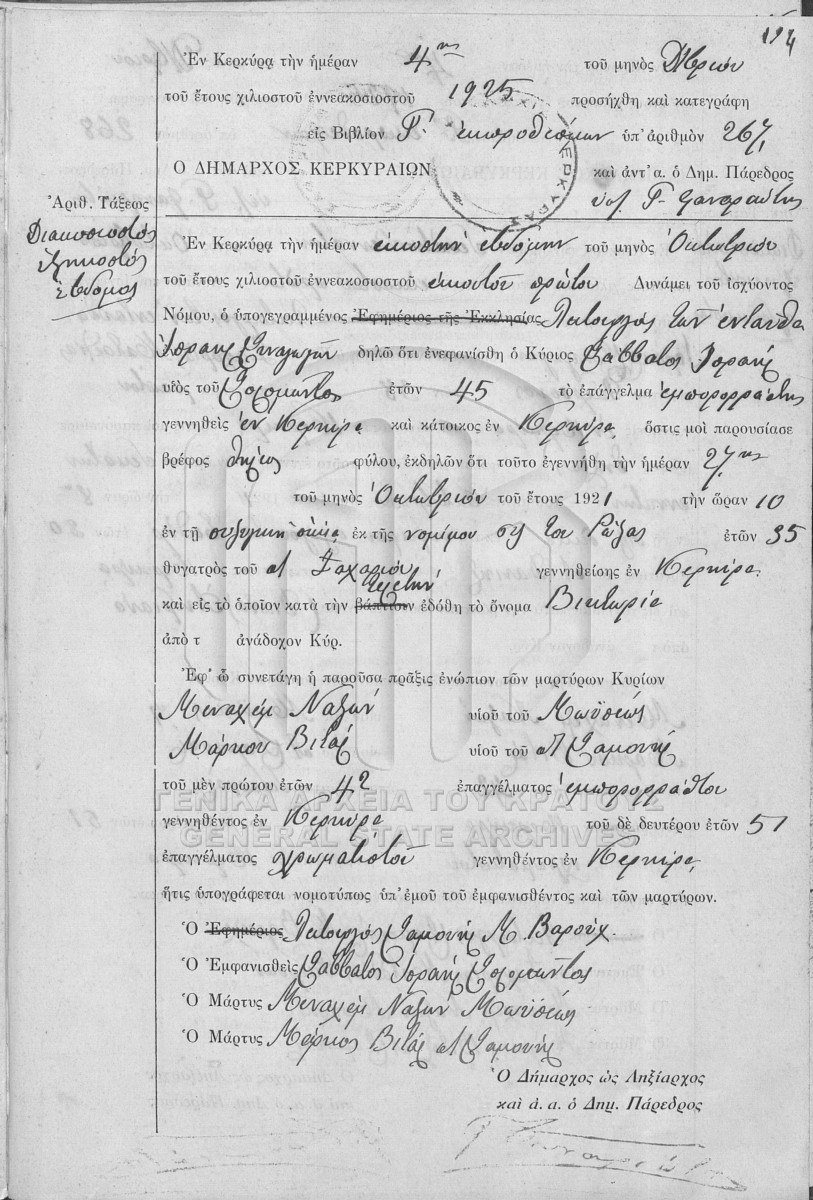 194
Ἐν Κερκύρᾳ τὴν ἡμέραν 4ης τοῦ μηνὸς Δ/βρίου
τοῦ ἔτους χιλιοστοῦ ἐννεακοσιοστοῦ 1925 προσήχθη καὶ κατεγράφη
εἰς Βιβλίον Γ' ἐκπροθέσμων ὑπ' ἀριθμὸν 267
Ο ΔΗΜΑΡΧΟΣ ΚΕΡΚΥΡΑΙΩΝ καὶ ἀντ' α. ὁ Δημ. Πάρεδρος
Ἀριθ. Τάξεως
Διακοσιοστός
ἑξηκοστός
ἕβδομος
Ἐν Κερκύρᾳ τὴν ἡμέραν εἰκοστήν ἑβδόμην τοῦ μηνὸς Ὀκτωβρίου
τοῦ ἔτους χιλιοστοῦ ἐννεακοσιοστοῦ εἰκοστοῦ πρώτου Δυνάμει τοῦ ἰσχύοντος
Νόμου, ὁ ὑπογεγραμμένος Ἐφημέριος τῆς Ἐκκλησίας Λειτουργός τῶν ἐνταῦθα
Ἰσραηλ. Συναγωγῶν δηλῶ ὅτι ἐνεφανίσθη ὁ Κύριος Σάββατος Ἰσραήλ
υἱὸς τοῦ Σολομῶντος ἐτῶν 45 τὸ ἐπάγγελμα ἐμπορορράπτης
γεννηθεὶς ἐν Κερκύρᾳ καὶ κάτοικος ἐν Κερκύρᾳ, ὅστις μοὶ παρουσίασε
βρέφος θήλεος φύλου, ἐκδηλῶν ὅτι τοῦτο ἐγεννήθη τὴν ἡμέραν 27ης
τοῦ μηνὸς Ὀκτωβρίου τοῦ ἔτους 1921 τὴν ὥραν 10
ἐν τῇ συζυγικῇ οἰκίᾳ ἐκ τῆς νομίμου συζ. του Ρόζας ἐτῶν 35
θυγατρὸς τοῦ Ζαχαρίου γεννηθείσης ἐν Κερκύρᾳ
καὶ εἰς τὸ ὁποῖον κατὰ τὴν βάπτισιν ἐδόθη τὸ ὄνομα Βικτωρία
ἀπὸ τ ἀνάδοχον Κύρ.
Ἐφ' ᾧ συνετάγη ἡ παροῦσα πρᾶξις ἐνώπιον τῶν μαρτύρων Κυρίων
Μεναχέμ Ναζών υἱοῦ τοῦ Μωϋσέως
Μάρκου Βιτάλ υἱοῦ τοῦ Σαμουήλ
τοῦ μὲν πρώτου ἐτῶν 42 ἐπαγγέλματος ἐμπορορράπτου
γεννηθέντος ἐν Κερκύρᾳ τοῦ δὲ δευτέρου ἐτῶν 51
ἐπαγγέλματος χρωματιστοῦ γεννηθέντος ἐν Κερκύρᾳ,
ἥτις ὑπογράφεται νομοτύπως ὑπ' ἐμοῦ τοῦ ἐμφανισθέντος καὶ τῶν μαρτύρων.
Ὁ Ἐφημέριος Λειτουργός Σαμουήλ Μ. Βαρούχ
Ὁ Ἐμφανισθεὶς Σάββατος Ἰσραήλ Σολομῶντος
Ὁ Μάρτυς Μεναχέμ Ναζών Μωϋσέως
Ὁ Μάρτυς Μάρκος Βιτάλ Σαμουήλ
Ὁ Δήμαρχος ὡς Ληξίαρχος
καὶ ἀ. α. ὁ Δημ. Πάρεδρος
ΓΕΝΙΚΑ ΑΡΧΕΙΑ ΤΟΥ ΚΡΑΤΟΥΣ
GENERAL STATE ARCHIVES